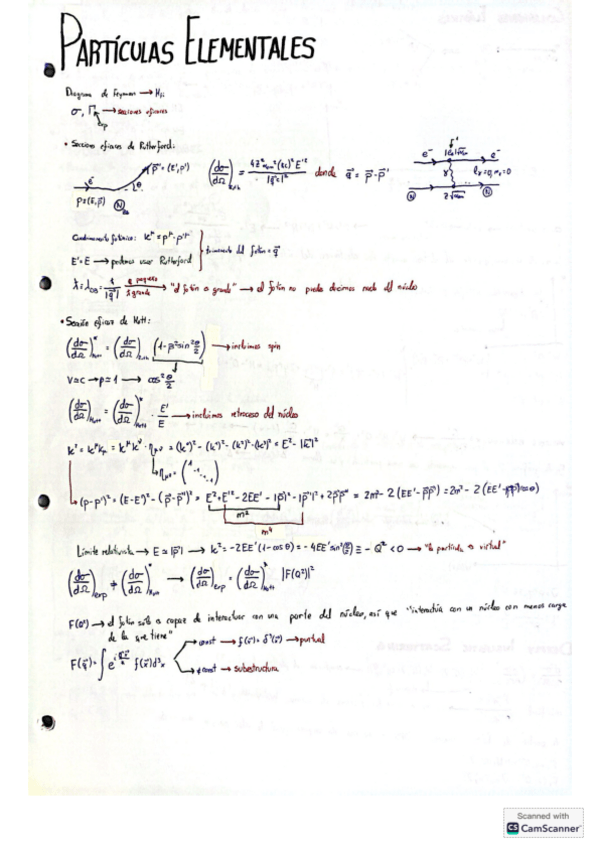 PARTÍCULAS ELEMENTALES
Diagrama de Feynman → M_fi
σ, Γ → secciones eficaces
exp
• Secciones eficaces de Rutherford:
e⁻ p'=(E',p⃗') θ
p=(E,p⃗) N
(dσ/dΩ)_Ruth = 4Z²α²_em(ħc)²E'²/|q⃗c|⁴ donde q⃗ = p⃗-p⃗'
e⁻ e⁻
γ
N Z√α_em N
Cuadrimomento fotónico: k^μ = p^μ - p'^μ
momento del fotón = q⃗
E'≈E → podemos usar Rutherford
"el fotón es grande" → el fotón no puede decirnos nada del núcleo
• Sección eficaz de Mott:
(dσ/dΩ)*_Mott = (dσ/dΩ)_Ruth (1-β²sin²θ/2) → incluimos spin
v≈c → β≈1 → cos²θ/2
(dσ/dΩ)_Mott = (dσ/dΩ)*_Mott · E'/E → incluimos retroceso del núcleo
k² = k^μ k_μ = k^μ k^ν · η_μν = (k⁰)² - (k¹)² - (k²)² - (k³)² = E² - |k⃗|²
η_μν =
(p-p')² = (E-E')² - (p⃗-p⃗')² = E² + E'² - 2EE' - |p⃗|² - |p⃗'|² + 2p⃗p⃗' = 2m² - 2(EE' - p⃗p⃗')
m²
Límite relativista → E ≃ |p⃗| → k² = -2EE'(1-cosθ) = -4EE' sin²(θ/2) ≡ -Q² < 0 → "la partícula es virtual"
(dσ/dΩ)_exp ≠ (dσ/dΩ)*_Mott → (dσ/dΩ)_exp = (dσ/dΩ)*_Mott |F(Q²)|²
F(Q²) → el fotón solo es capaz de interactuar con una parte del núcleo, así que "interactúa con un núcleo con menos carga
de la que tiene"
const → f(x⃗) = δ³(x⃗) → puntual
F(q⃗) = ∫ f(x⃗) d³x
≠ const → subestructura
Scanned with
CS CamScanner